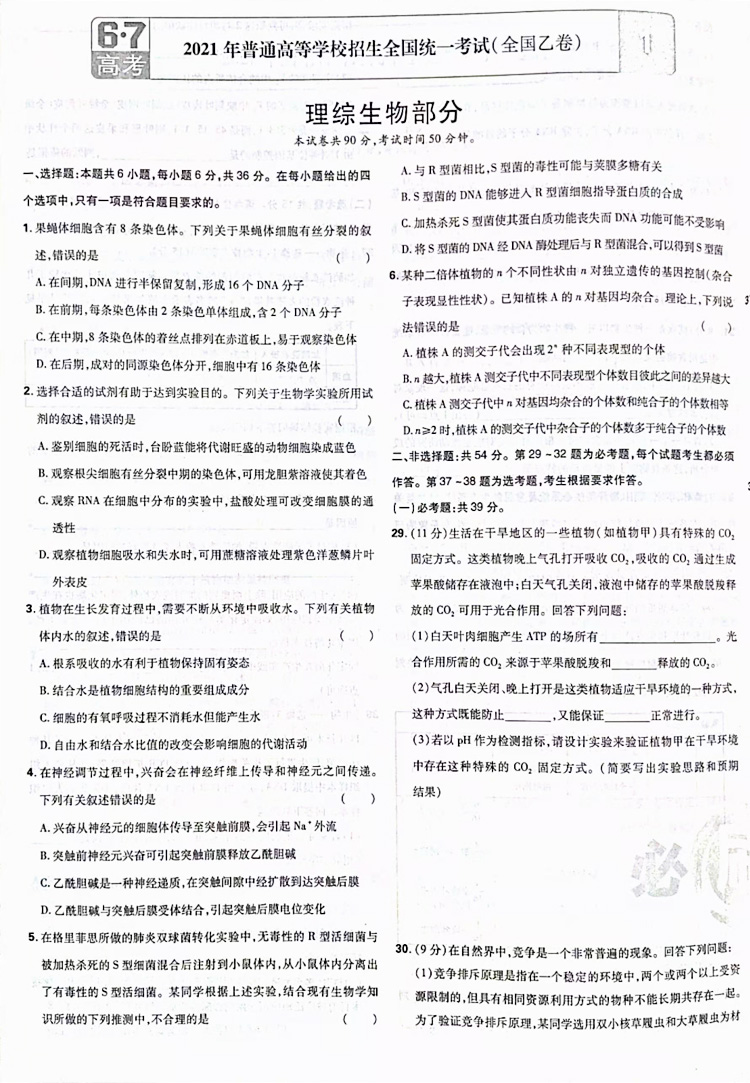 6·7
高考
2021年普通高等学校招生全国统一考试(全国乙卷)
理综生物部分
本试卷共90分,考试时间50分钟。
一、选择题:本题共6小题,每小题6分,共36分。在每小题给出的四
个选项中,只有一项是符合题目要求的。
1.果蝇体细胞含有8条染色体。下列关于果蝇体细胞有丝分裂的叙
述,错误的是 ( )
A.在间期,DNA进行半保留复制,形成16个DNA分子
B.在前期,每条染色体由2条染色单体组成,含2个DNA分子
C.在中期,8条染色体的着丝点排列在赤道板上,易于观察染色体
D.在后期,成对的同源染色体分开,细胞中有16条染色体
2.选择合适的试剂有助于达到实验目的。下列关于生物学实验所用试
剂的叙述,错误的是 ( )
A.鉴别细胞的死活时,台盼蓝能将代谢旺盛的动物细胞染成蓝色
B.观察根尖细胞有丝分裂中期的染色体,可用龙胆紫溶液使其着色
C.观察RNA在细胞中分布的实验中,盐酸处理可改变细胞膜的通
透性
D.观察植物细胞吸水和失水时,可用蔗糖溶液处理紫色洋葱鳞片叶
外表皮
3.植物在生长发育过程中,需要不断从环境中吸收水。下列有关植物
体内水的叙述,错误的是 ( )
A.根系吸收的水有利于植物保持固有姿态
B.结合水是植物细胞结构的重要组成成分
C.细胞的有氧呼吸过程不消耗水但能产生水
D.自由水和结合水比值的改变会影响细胞的代谢活动
4.在神经调节过程中,兴奋会在神经纤维上传导和神经元之间传递。
下列有关叙述错误的是 ( )
A.兴奋从神经元的细胞体传导至突触前膜,会引起Na⁺外流
B.突触前神经元兴奋可引起突触前膜释放乙酰胆碱
C.乙酰胆碱是一种神经递质,在突触间隙中经扩散到达突触后膜
D.乙酰胆碱与突触后膜受体结合,引起突触后膜电位变化
5.在格里菲思所做的肺炎双球菌转化实验中,无毒性的R型活细菌与
被加热杀死的S型细菌混合后注射到小鼠体内,从小鼠体内分离出
了有毒性的S型活细菌。某同学根据上述实验,结合现有生物学知
识所做的下列推测中,不合理的是 ( )
A.与R型菌相比,S型菌的毒性可能与荚膜多糖有关
B.S型菌的DNA能够进入R型菌细胞指导蛋白质的合成
C.加热杀死S型菌使其蛋白质功能丧失而DNA功能可能不受影响
D.将S型菌的DNA经DNA酶处理后与R型菌混合,可以得到S型菌
6.某种二倍体植物的n个不同性状由n对独立遗传的基因控制(杂合
子表现显性性状)。已知植株A的n对基因均杂合。理论上,下列说
法错误的是 ( )
A.植株A的测交子代会出现2ⁿ种不同表现型的个体
B.n越大,植株A测交子代中不同表现型个体数目彼此之间的差异越大
C.植株A测交子代中n对基因均杂合的个体数和纯合子的个体数相等
D.n≥2时,植株A的测交子代中杂合子的个体数多于纯合子的个体数
二、非选择题:共54分。第29~32题为必考题,每个试题考生都必须
作答。第37~38题为选考题,考生根据要求作答。
(一)必考题:共39分。
29.(11分)生活在干旱地区的一些植物(如植物甲)具有特殊的CO₂
固定方式。这类植物晚上气孔打开吸收CO₂,吸收的CO₂通过生成
苹果酸储存在液泡中;白天气孔关闭,液泡中储存的苹果酸脱羧释
放的CO₂可用于光合作用。回答下列问题:
(1)白天叶肉细胞产生ATP的场所有________。光
合作用所需的CO₂来源于苹果酸脱羧和________释放的CO₂。
(2)气孔白天关闭、晚上打开是这类植物适应干旱环境的一种方式,
这种方式既能防止________,又能保证________正常进行。
(3)若以pH作为检测指标,请设计实验来验证植物甲在干旱环境
中存在这种特殊的CO₂固定方式。(简要写出实验思路和预期
结果)
30.(9分)在自然界中,竞争是一个非常普遍的现象。回答下列问题:
(1)竞争排斥原理是指在一个稳定的环境中,两个或两个以上受资
源限制的,但具有相同资源利用方式的物种不能长期共存在一起。
为了验证竞争排斥原理,某同学选用双小核草履虫和大草履虫为材